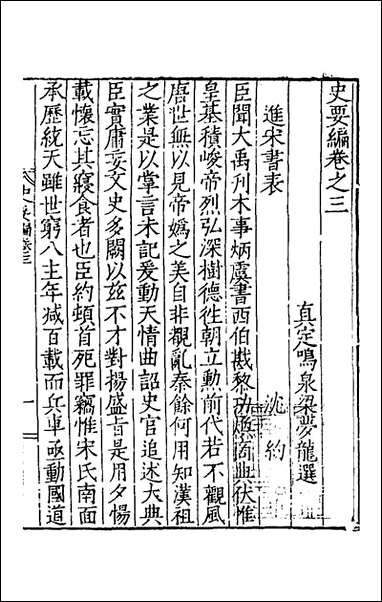 史要編卷之三
真定鳴泉梁夢龍選
進宋書表
沈約
臣聞大禹刋木事炳虞書西伯戡黎功煥商典伏惟
皇基積峻帝烈弘深樹德徃朝立勲前代若不觀風
唐世無以見帝嬀之美自非覩亂秦餘何用知漢祖
之業是以掌言未記爰動天情曲詔史官追述大典
臣實庸妄文史多闕以兹不才對揚盛旨是用夕惕
載懷忘其寢食者也臣約頓首死罪竊惟宋氏南面
承歷統天雖世窮八主年减百載而兵車亟動國道
史要編卷三
一